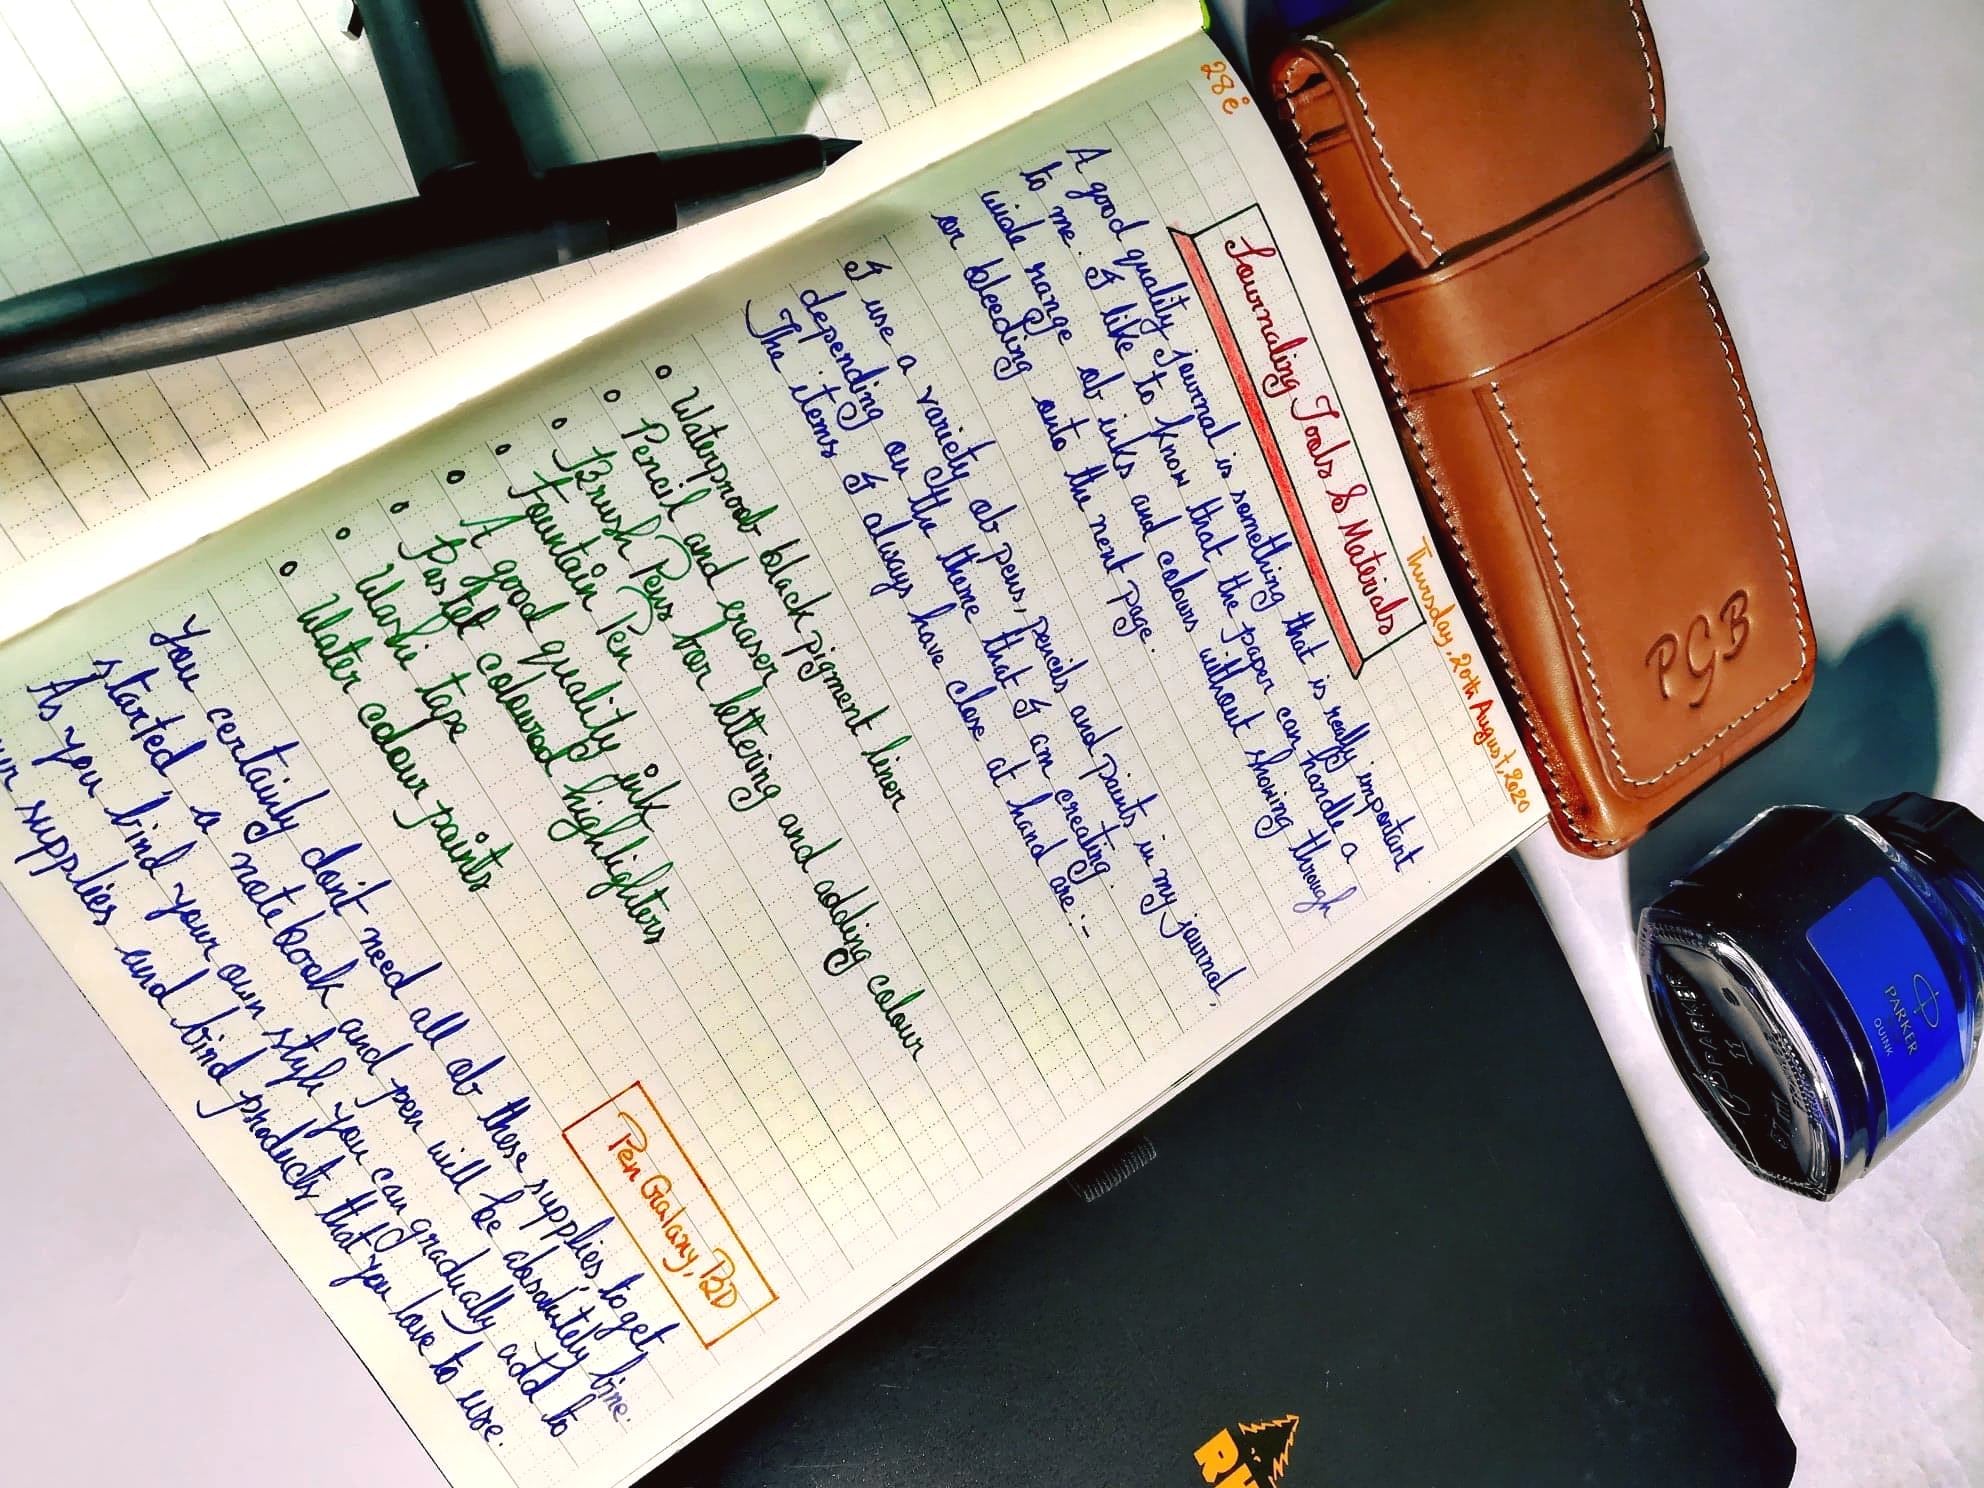 Thursday, 20th August, 2020
Journaling Tools & Materials
A good quality journal is something that is really important
to me. I like to know that the paper can handle a
wide range of inks and colours without showing through
or bleeding onto the next page.
I use a variety of pens, pencils and paints in my journal,
depending on the theme that I am creating.
The items I always have close at hand are:-
• Waterproof black pigment liner
• Pencil and eraser
• Brush Pens for lettering and adding colour
• Fountain Pen
• A good quality ink
• Pastel coloured highlighters
• Washi tape
• Water colour paints
You certainly don't need all of these supplies to get
started, a notebook and pen will be absolutely fine.
As you find your own style you can gradually add to
ur supplies and find products that you love to use.
Pen Galaxy, BD
PGB
PARKER
QUINK
PARKER
RH